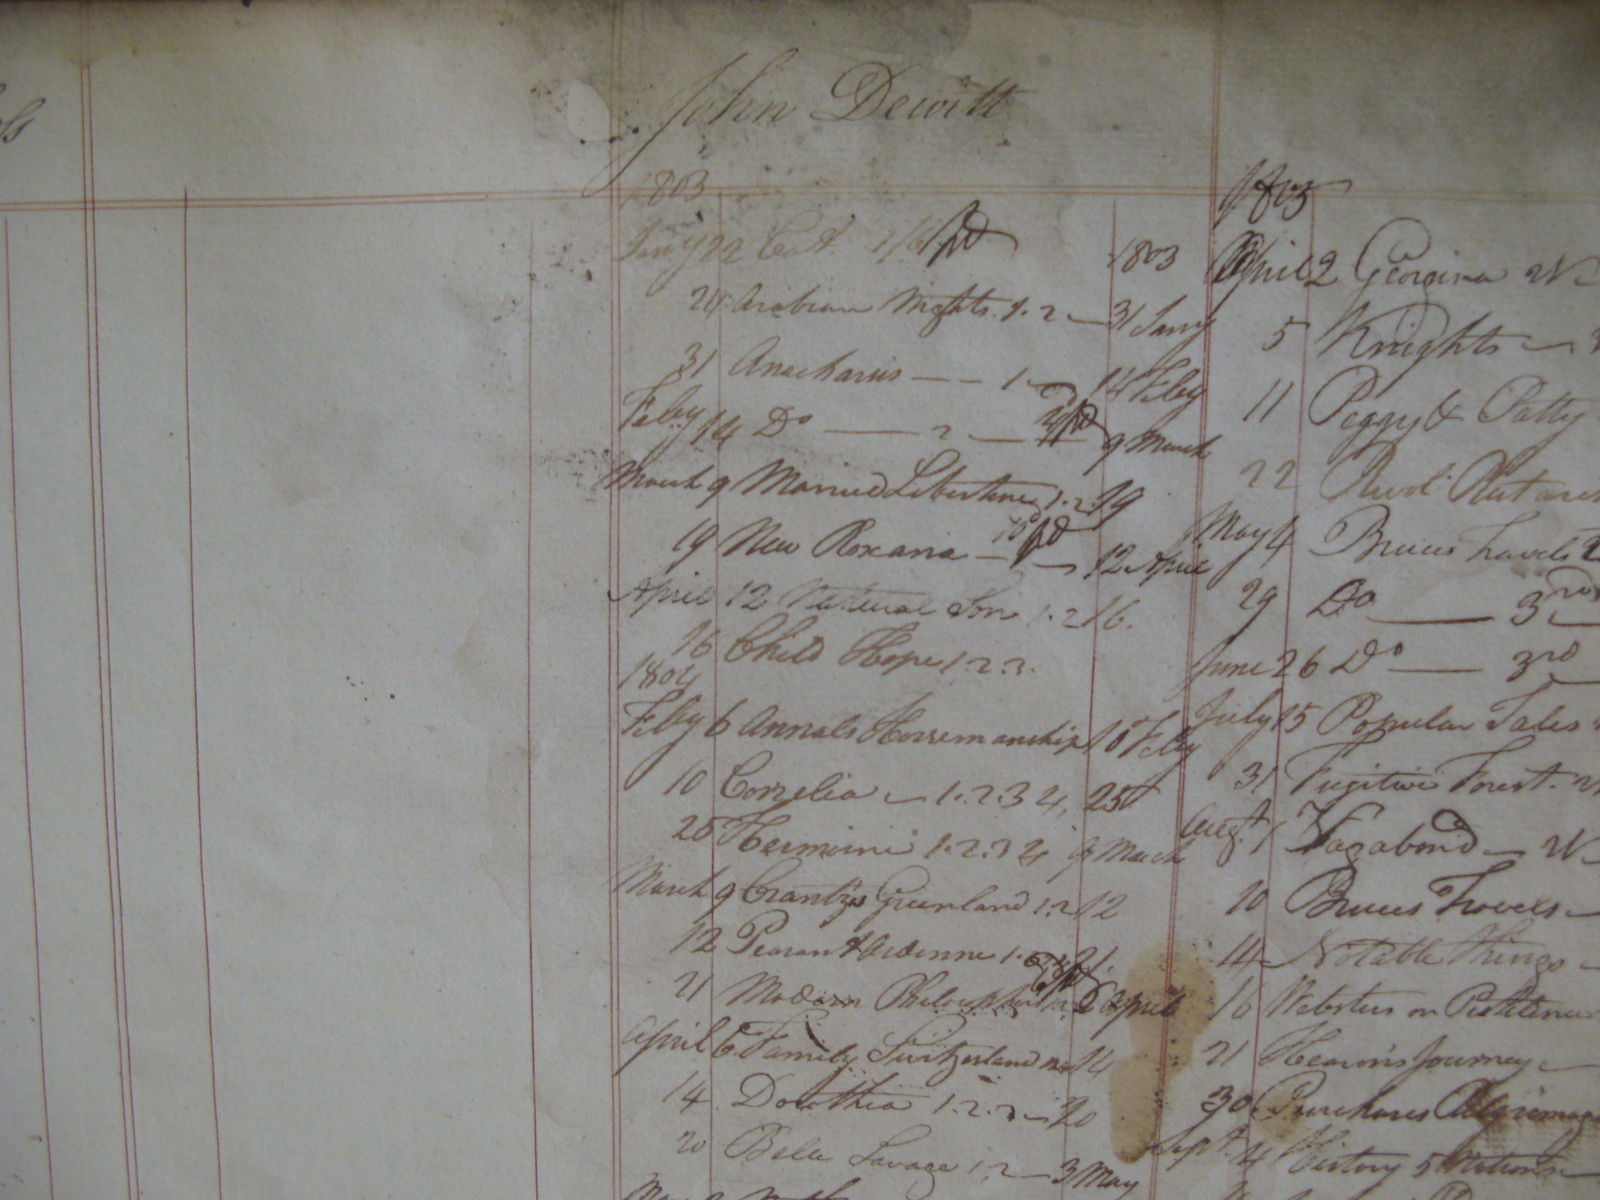 John Dewitt
1803
Jany 22 Cat. 1/6 pd
24 Arabian Nights. 1. 2 — 31 Jany
31 Anacharsis — — 1 — 14 Feby
Feby 14 Do — 2 — pd 9 March
March 9 Married Libertine 1. 2 19
19 New Roxana — pd — 12 April
April 12 Natural Son 1. 2 16.
16 Child Hope 1. 2. 3.
1804
Feby 6 Annals Horsemanship 10 Feby
10 Cornelia — 1. 2. 3 4, 25
25 Hermione 1. 2. 3 4 9 March
March 9 Crantz's Greenland 1. 2 12
12 Peasant Ardenne 1. 21.
21 Modern Philosophers 6 April
April 6 Family Switzerland 14
14 Dorothea 1. 2. 3 — 20
20 Belle Savage 1. 2 — 3 May
1803
1803
April 2 Georgina
5 Knights —
11 Peggy & Patty
22
May 4 Bruces Travels
29 Do — 3rd
June 26 Do — 3rd
July 15 Popular Tales
31 Fugitive Forest.
Augt 1 Vagabond —
10 Bruces Travels —
14 Notable Things —
16 Websters on Pestilence
21 Hearn's Journey —
30 Purchases Pilgrimage
Sept. 4 History 5 Nations